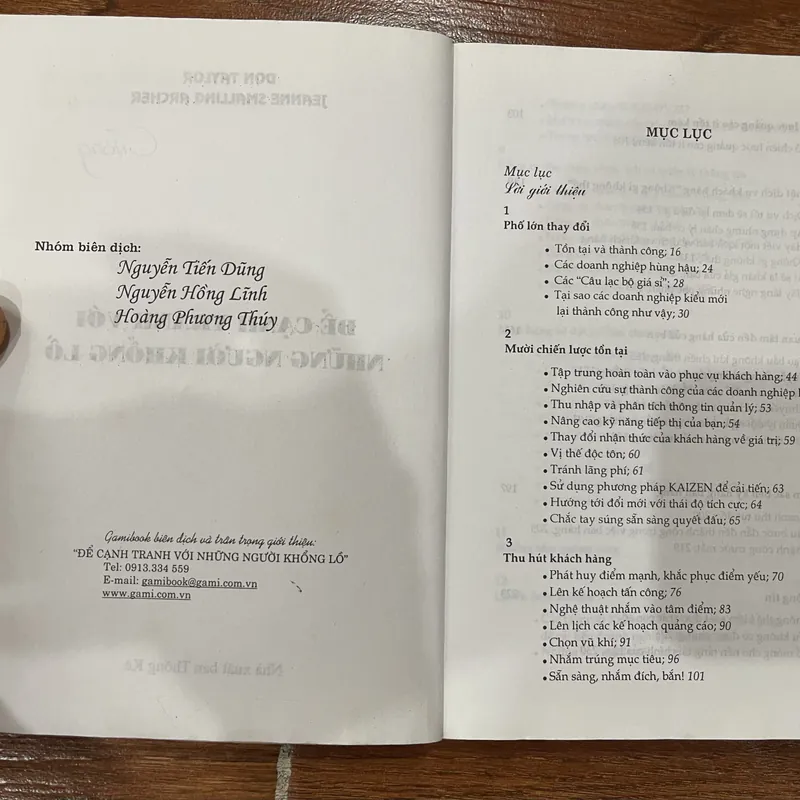 Nhóm biên dịch:
Nguyễn Tiến Dũng
Nguyễn Hồng Lĩnh
Hoàng Phương Thúy
Gamibook biên dịch và trân trọng giới thiệu:
"ĐỂ CẠNH TRANH VỚI NHỮNG NGƯỜI KHỔNG LỒ"
Tel: 0913.334 559
E-mail: gamibook@gami.com.vn
www.gami.com.vn
MỤC LỤC
Mục lục
Lời giới thiệu
1
Phố lớn thay đổi
• Tồn tại và thành công; 16
• Các doanh nghiệp hùng hậu; 24
• Các "Câu lạc bộ giá sỉ"; 28
• Tại sao các doanh nghiệp kiểu mới
lại thành công như vậy; 30
2
Mười chiến lược tồn tại
• Tập trung hoàn toàn vào phục vụ khách hàng; 44
• Nghiên cứu sự thành công của các doanh nghiệp
• Thu nhập và phân tích thông tin quản lý; 53
• Nâng cao kỹ năng tiếp thị của bạn; 54
• Thay đổi nhận thức của khách hàng về giá trị; 59
• Vị thế độc tôn; 60
• Tránh lãng phí; 61
• Sử dụng phương pháp KAIZEN để cải tiến; 63
• Hướng tới đổi mới với thái độ tích cực; 64
• Chắc tay súng sẵn sàng quyết đấu; 65
3
Thu hút khách hàng
• Phát huy điểm mạnh, khắc phục điểm yếu; 70
• Lên kế hoạch tấn công; 76
• Nghệ thuật nhắm vào tâm điểm; 83
• Lên lịch các kế hoạch quảng cáo; 90
• Chọn vũ khí; 91
• Nhắm trúng mục tiêu; 96
• Sẵn sàng, nhắm đích, bắn! 101